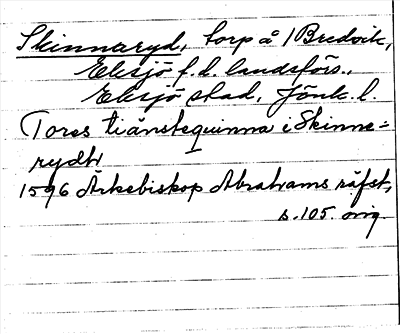 Skinnaryd, torp å /Bredvik,
Eksjö f.d. landsförs.,
Eksjö stad, Jönk. l.
Tores tiänstequinna i Skinne=
rydh
1596 Ärkebiskop Abrahams räfst,
s. 105. orig.